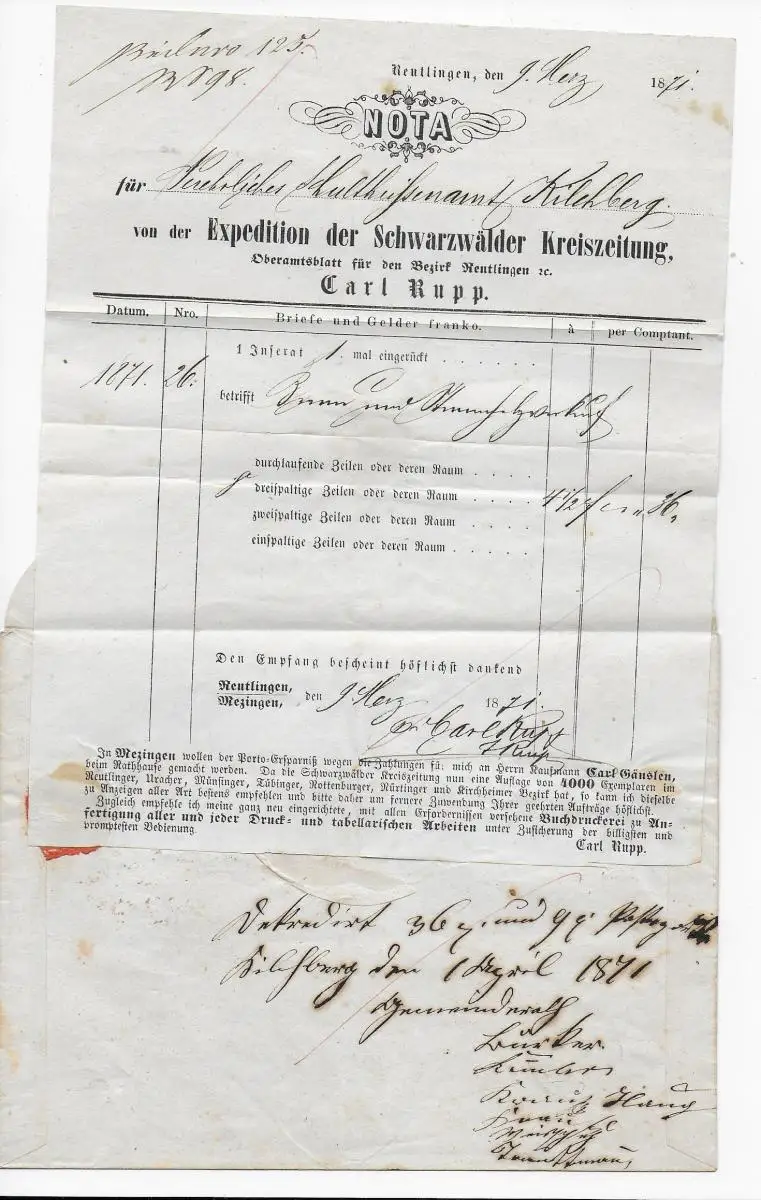 Reutlingen, den 9. Merz 1871.
NOTA
für Verehrliches Schultheißenamt Kilchberg.
von der Expedition der Schwarzwälder Kreiszeitung,
Oberamtsblatt für den Bezirk Reutlingen ꝛc.
Carl Rupp.
Datum. Nro. Briefe und Gelder franko. à per Comptant.
1871. 26. 1 Inserat 1. mal eingerückt . . . . . . .
betrifft und Stammholzverkauf
durchlaufende Zeilen oder deren Raum . . . .
dreispaltige Zeilen oder deren Raum . . . . 4 1/2 36
zweispaltige Zeilen oder deren Raum . . . . .
einspaltige Zeilen oder deren Raum . . . . .
Den Empfang bescheint höflichst dankend
Reutlingen,
Mezingen, den 9. Merz 1871.
Carl Rupp
In Mezingen wollen der Porto-Ersparniß wegen die Zahlungen für mich an Herrn Kaufmann Carl Gänslen,
beim Rathhause gemacht werden. Da die Schwarzwälder Kreiszeitung nun eine Auflage von 4000 Exemplaren im
Reutlinger, Uracher, Münsinger, Tübinger, Rottenburger, Nürtinger und Kirchheimer Bezirk hat, so kann ich dieselbe
zu Anzeigen aller Art bestens empfehlen und bitte daher um fernere Zuwendung Ihrer geehrten Aufträge höflichst.
Zugleich empfehle ich meine ganz neu eingerichtete, mit allen Erfordernissen versehene Buchdruckerei zu An-
fertigung aller und jeder Druck- und tabellarischen Arbeiten unter Zusicherung der billigsten und
promptesten Bedienung.
Carl Rupp.
Dekredirt 36 x. und 9 x.
Kilchberg den 1 April 1871
Gemeinderath
Bürker
Haug